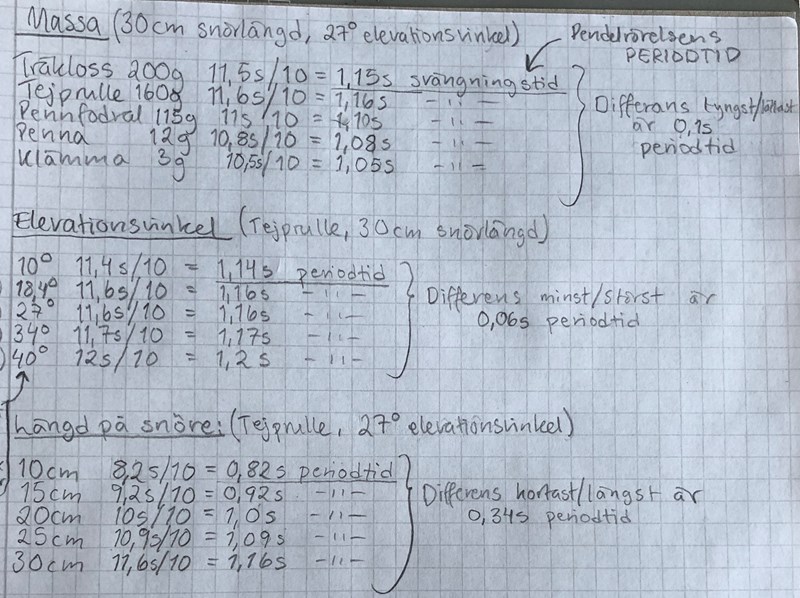 Massa (30cm snörlängd, 27° elevationsvinkel)
Pendelrörelsens
PERIODTID
Träkloss 200g 11,5s/10 = 1,15s svängningstid
Tejprulle 160g 11,6s/10 = 1,16s -"-
Pennfodral 115g 11s/10 = 1,10s -"-
Penna 12g 10,8s/10 = 1,08s -"-
Klämma 3g 10,5s/10 = 1,05s -"-
Differans tyngst/lättast
är 0,1s
periodtid
Elevationsvinkel (Tejprulle, 30cm snörlängd)
10° 11,4s/10 = 1,14s periodtid
18,4° 11,6s/10 = 1,16s -"-
27° 11,6s/10 = 1,16s -"-
34° 11,7s/10 = 1,17s -"-
40° 12s/10 = 1,2s -"-
Differens minst/störst är
0,06s periodtid
Längd på snöre: (Tejprulle, 27° elevationsvinkel)
10cm 8,2s/10 = 0,82s periodtid
15cm 9,2s/10 = 0,92s -"-
20cm 10s/10 = 1,0s -"-
25cm 10,9s/10 = 1,09s -"-
30cm 11,6s/10 = 1,16s -"-
Differens kortast/längst är
0,34s periodtid